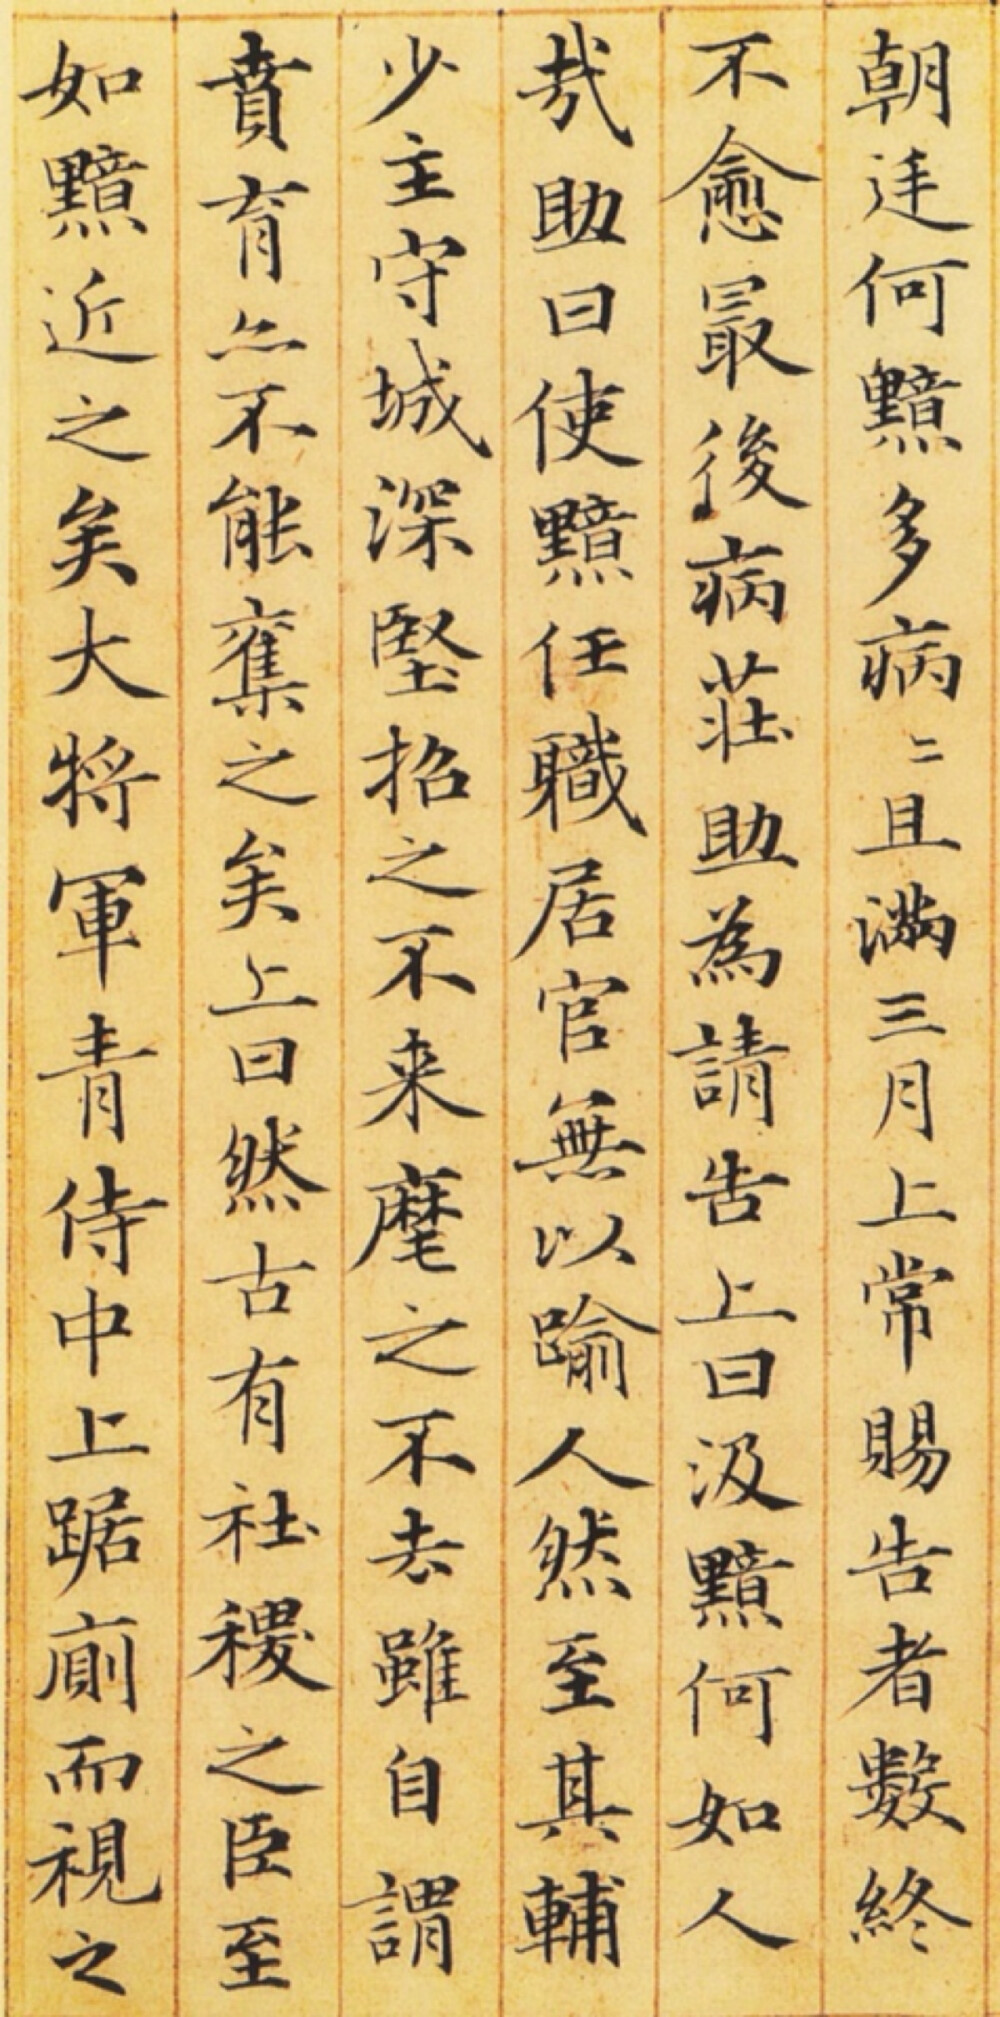 朝廷何黯多病〻且滿三月上常賜告者數終
不愈最後病莊助為請告上曰汲黯何如人
哉助曰使黯任職居官無以踰人然至其輔
少主守城深堅招之不来麾之不去雖自謂
賁育亦不能奪之矣上曰然古有社稷之臣至
如黯近之矣大將軍青侍中上踞廁而視之